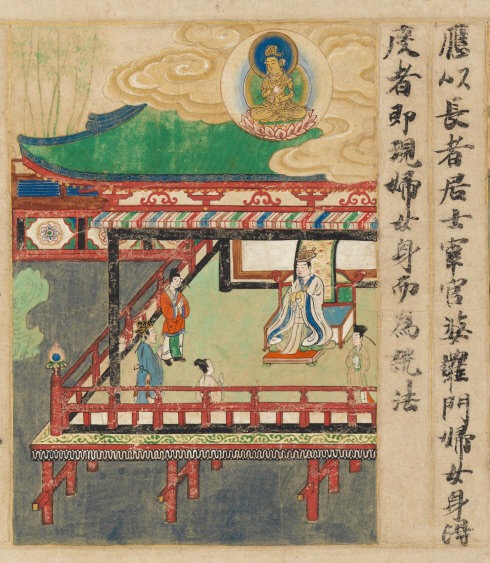 應以長者居士宰官婆羅門婦女身得
度者即現婦女身而為說法